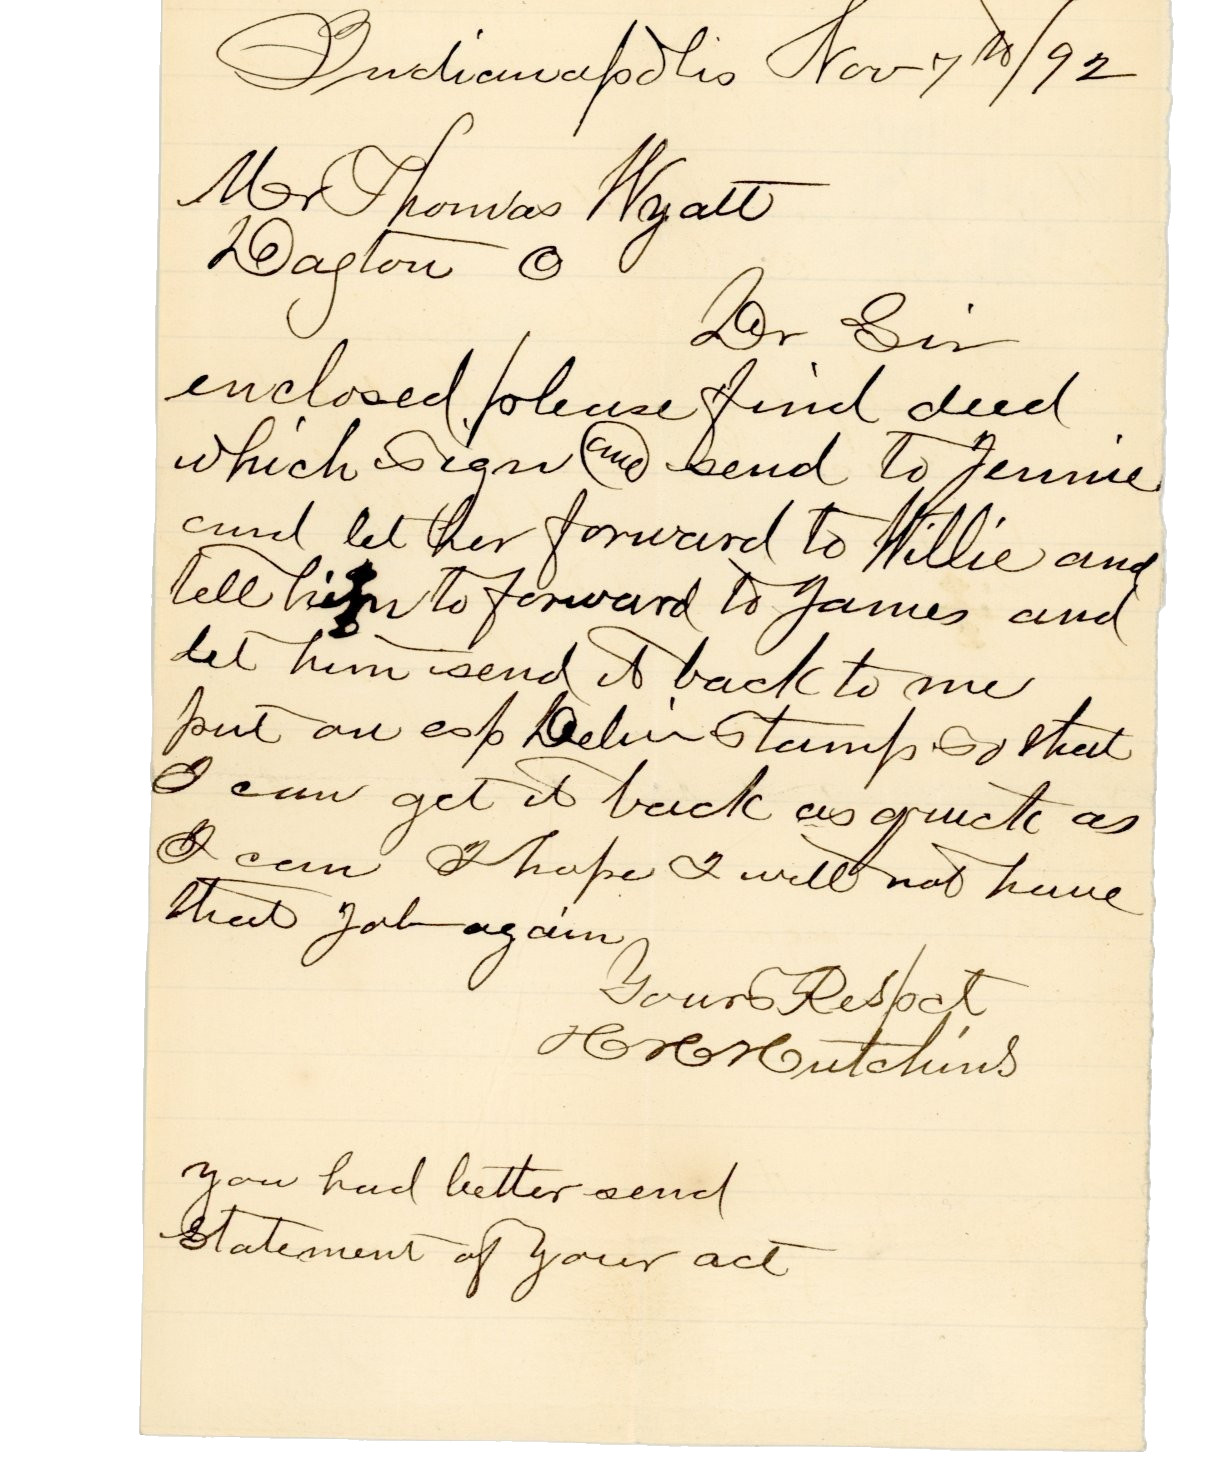 Indianapolis Nov 7th/92
Mr Thomas Wyatt
Dayton O
Dr Sir
enclosed please find deed
which sign and send to Jennie
and let her forward to Willie and
tell him to forward to James and
let him send it back to me
put on esp Deliv Stamp so that
I can get it back as quick as
I can I hope I will not have
that job again
Yours Respct
H H Hutchins
you had better send
statement of your act